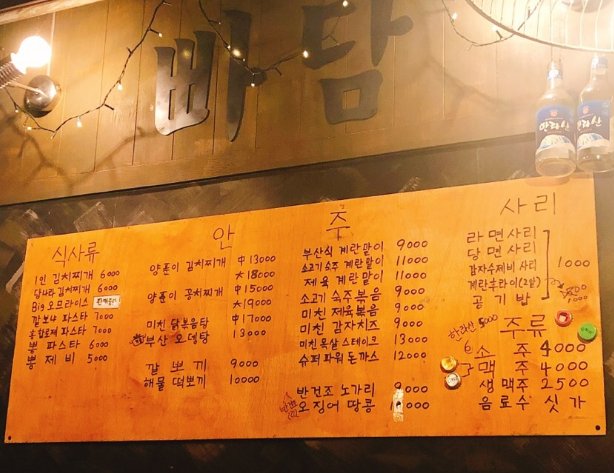 빠담
한라산
한라산
식사류
1인 김치찌개 6000
당나라 김치찌개 6000
Big 오므라이스
깔보나 파스타 7000
홍합로제 파스타 7000
뽕 파스타 6000
뽕 제비 5000
안주
양푼이 김치찌개 中 13000
大 18000
양푼이 꽁치찌개 中 15000
大 19000
미친 닭볶음탕 中 17000
부산 오뎅탕 13000
깔뽀끼 9000
해물 떡뽀끼 10000
부산식 계란말이 9000
소고기 숙주 계란말이 11000
제육 계란말이 11000
소고기 숙주볶음 9000
미친 제육볶음 9000
미친 감자치즈 9000
미친 목살 스테이크 13000
슈퍼 파워 돈까스 12000
반건조 노가리 9000
오징어 땅콩
사리
라면사리
당면사리
감자수제비 사리 1000
계란후라이(2알)
공기밥
한라산 5000
주류
소주 4000
맥주 4000
생맥주 2500
음료수 싯가